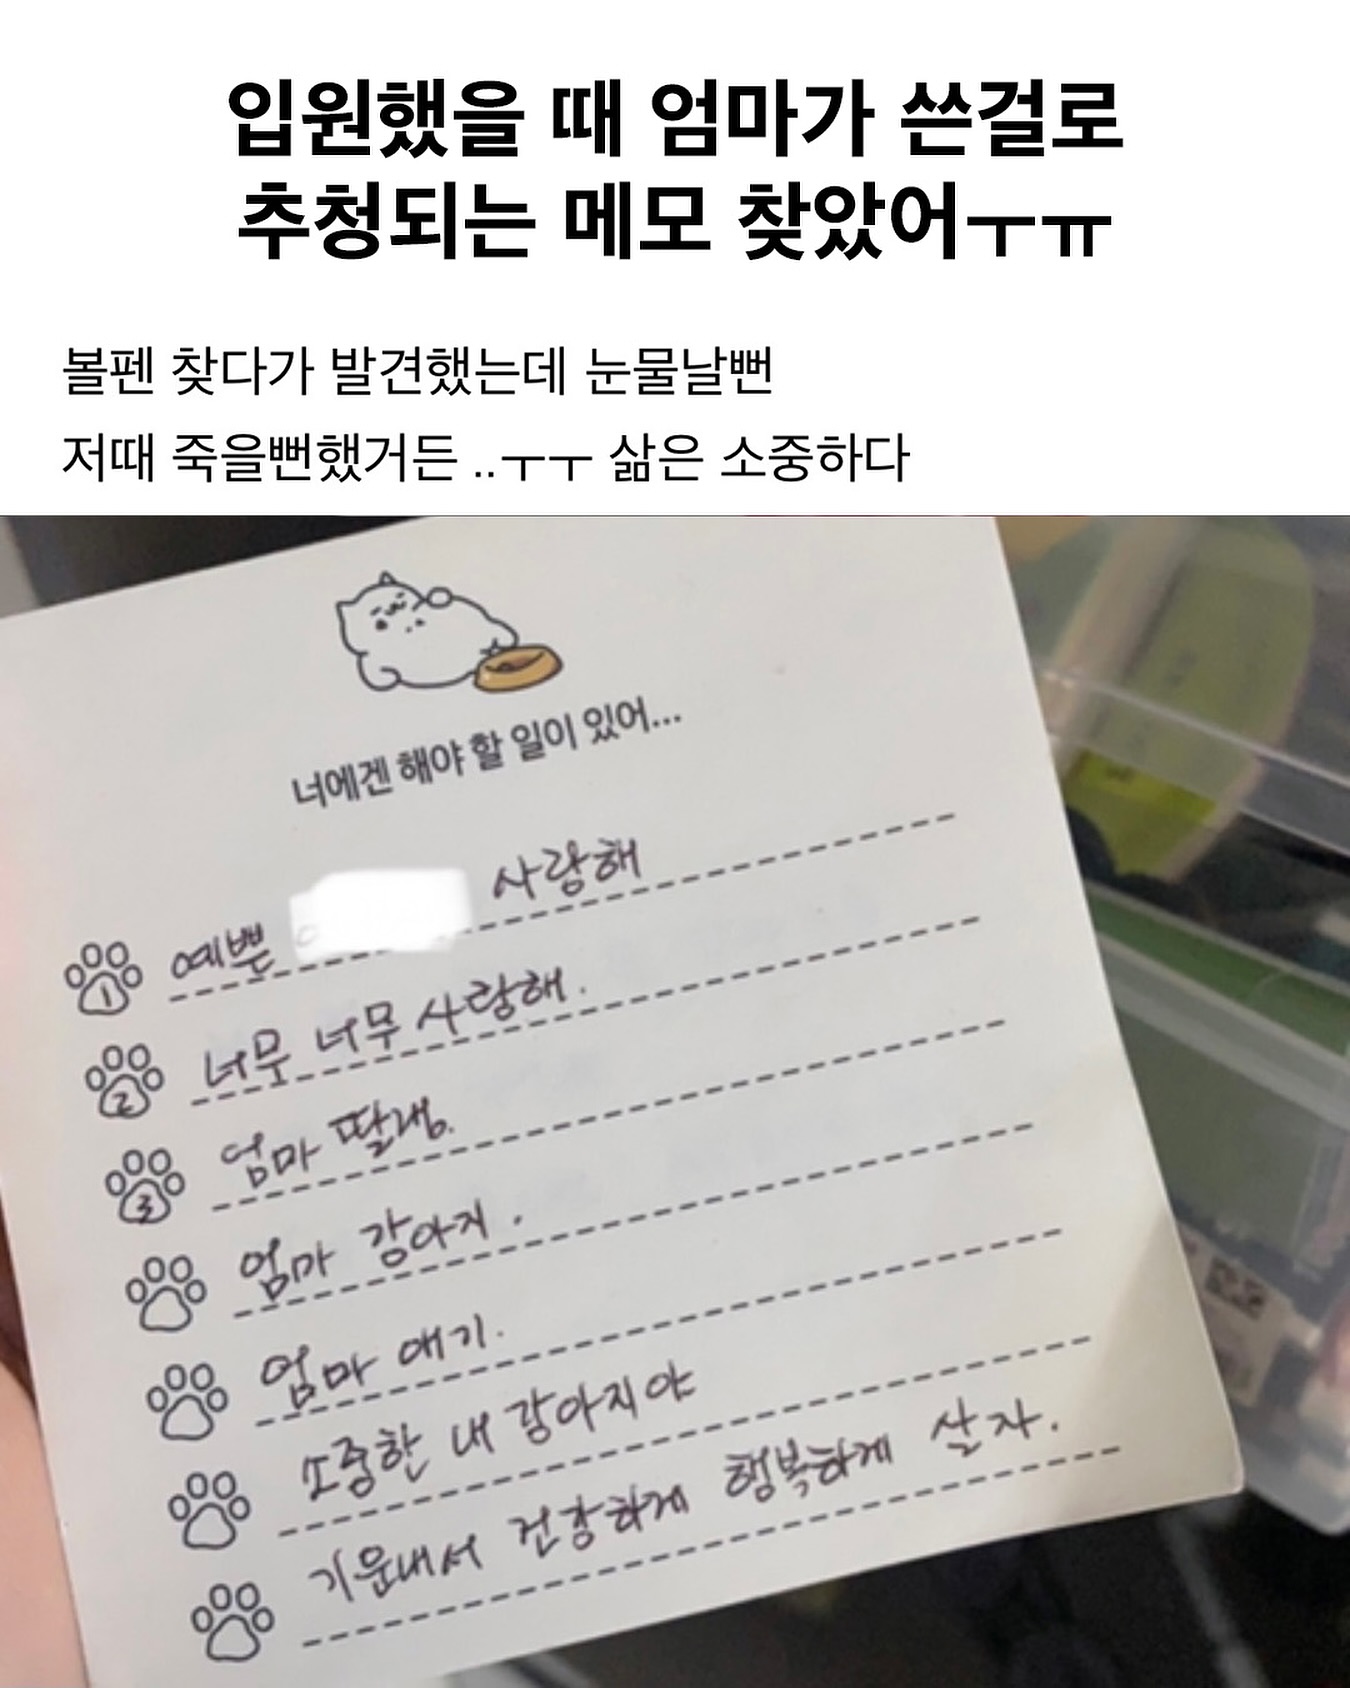 입원했을 때 엄마가 쓴걸로
추청되는 메모 찾았어ㅜㅠ
볼펜 찾다가 발견했는데 눈물날뻔
저때 죽을뻔했거든 ..ㅜㅜ 삶은 소중하다
너에겐 해야 할 일이 있어...
1 예쁜 사랑해
2 너무 너무 사랑해.
3 엄마 딸램.
엄마 강아지.
엄마 애기.
소중한 내 강아지야
기운내서 건강하게 행복하게 살자.